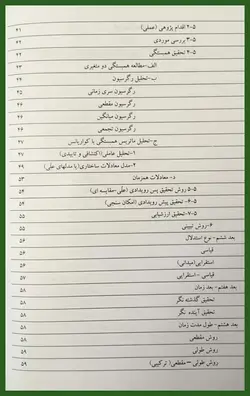 ۵-۲ اقدام پژوهی (عملی) ۴۱
۵-۳ بررسی موردی ۴۱
۵-۴ تحقیق همبستگی ۴۲
الف-مطالعه همبستگی دو متغیری ۴۳
ب-تحلیل رگرسیون ۴۴
رگرسیون سری زمانی ۴۵
رگرسیون مقطعی ۴۶
رگرسیون میانگین ۴۶
رگرسیون تجمعی ۴۶
ج-تحلیل ماتریس همبستگی یا کواریانس ۴۷
۱-تحلیل عاملی(اکتشافی و تاییدی) ۴۷
۲-مدل معادلات ساختاری(یا مدلهای علّی) ۴۹
د- معادلات همزمان ۵۳
۵-۵ روش تحقیق پس رویدادی (علّی-مقایسه ای) ۵۴
۵-۶ تحقیق پیش رویدادی (امکان سنجی) ۵۴
۵-۷- تحقیق ارزشیابی ۵۵
۶-روش تبیینی ۵۵
بعد ششم- نوع استدلال ۵۶
قیاسی ۵۶
استقرایی(میدانی) ۵۶
قیاسی - استقرایی ۵۷
بعد هفتم- بعد زمان ۵۸
تحقیق گذشته نگر ۵۸
تحقیق آینده نگر ۵۸
بعد هشتم- طول مدت زمان ۵۸
روش مقطعی ۵۸
روش طولی ۵۹
روش طولی – مقطعی( ترکیبی) ۵۹